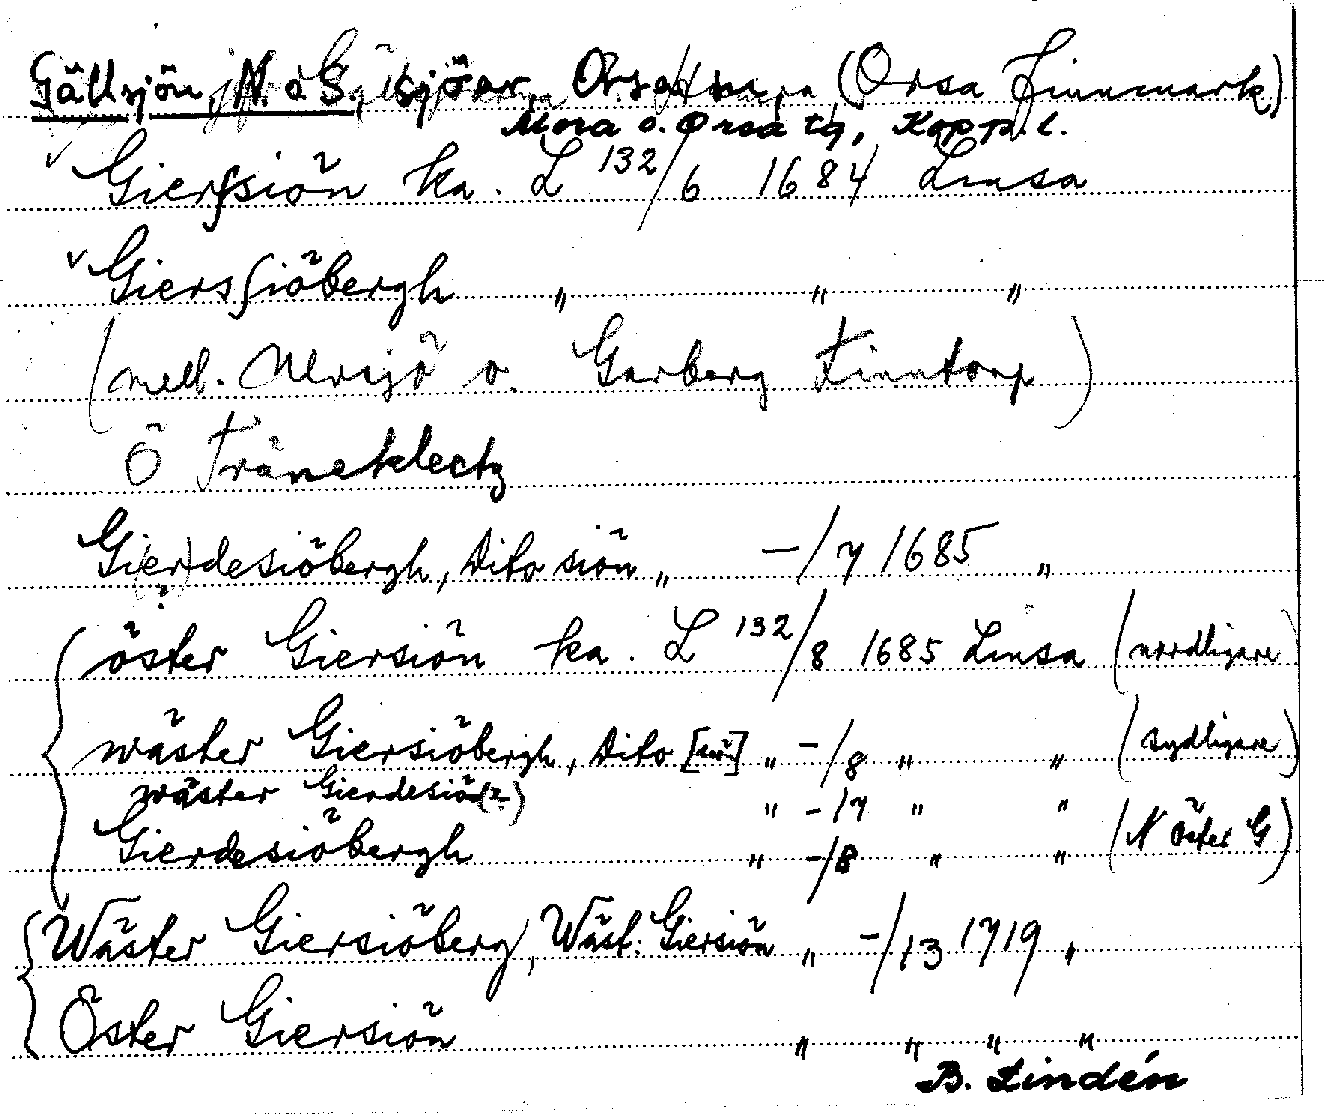 Gällsjön, N. o S., sjöar, Orsa sn, (Orsa Finnmark)
Mora o. Orsa tg, Kopp. l.
Gierssiön ka. L 132/6 1684 Lmsa
Gierssiöbergh " " "
(mell. Ulvsjö o. Garberg Finntorp)
Ö Träneklectz
Gier)desiöbergh, Dito siön " –/7 1685 "
öster Giersiön ka. L 132/8 1685 Lmsa (nordligare
wäster Giersiöbergh, Dito [siö] " –/8 " " (sydligare)
wäster Gierdesiö " –/7 " "
Gierdesiöbergh " –/8 " " (N öster G)
Wäster Giersiöberg, Wäst: Giersiön " –/13 1719 "
Öster Giersiön " " " "
B. Lindén